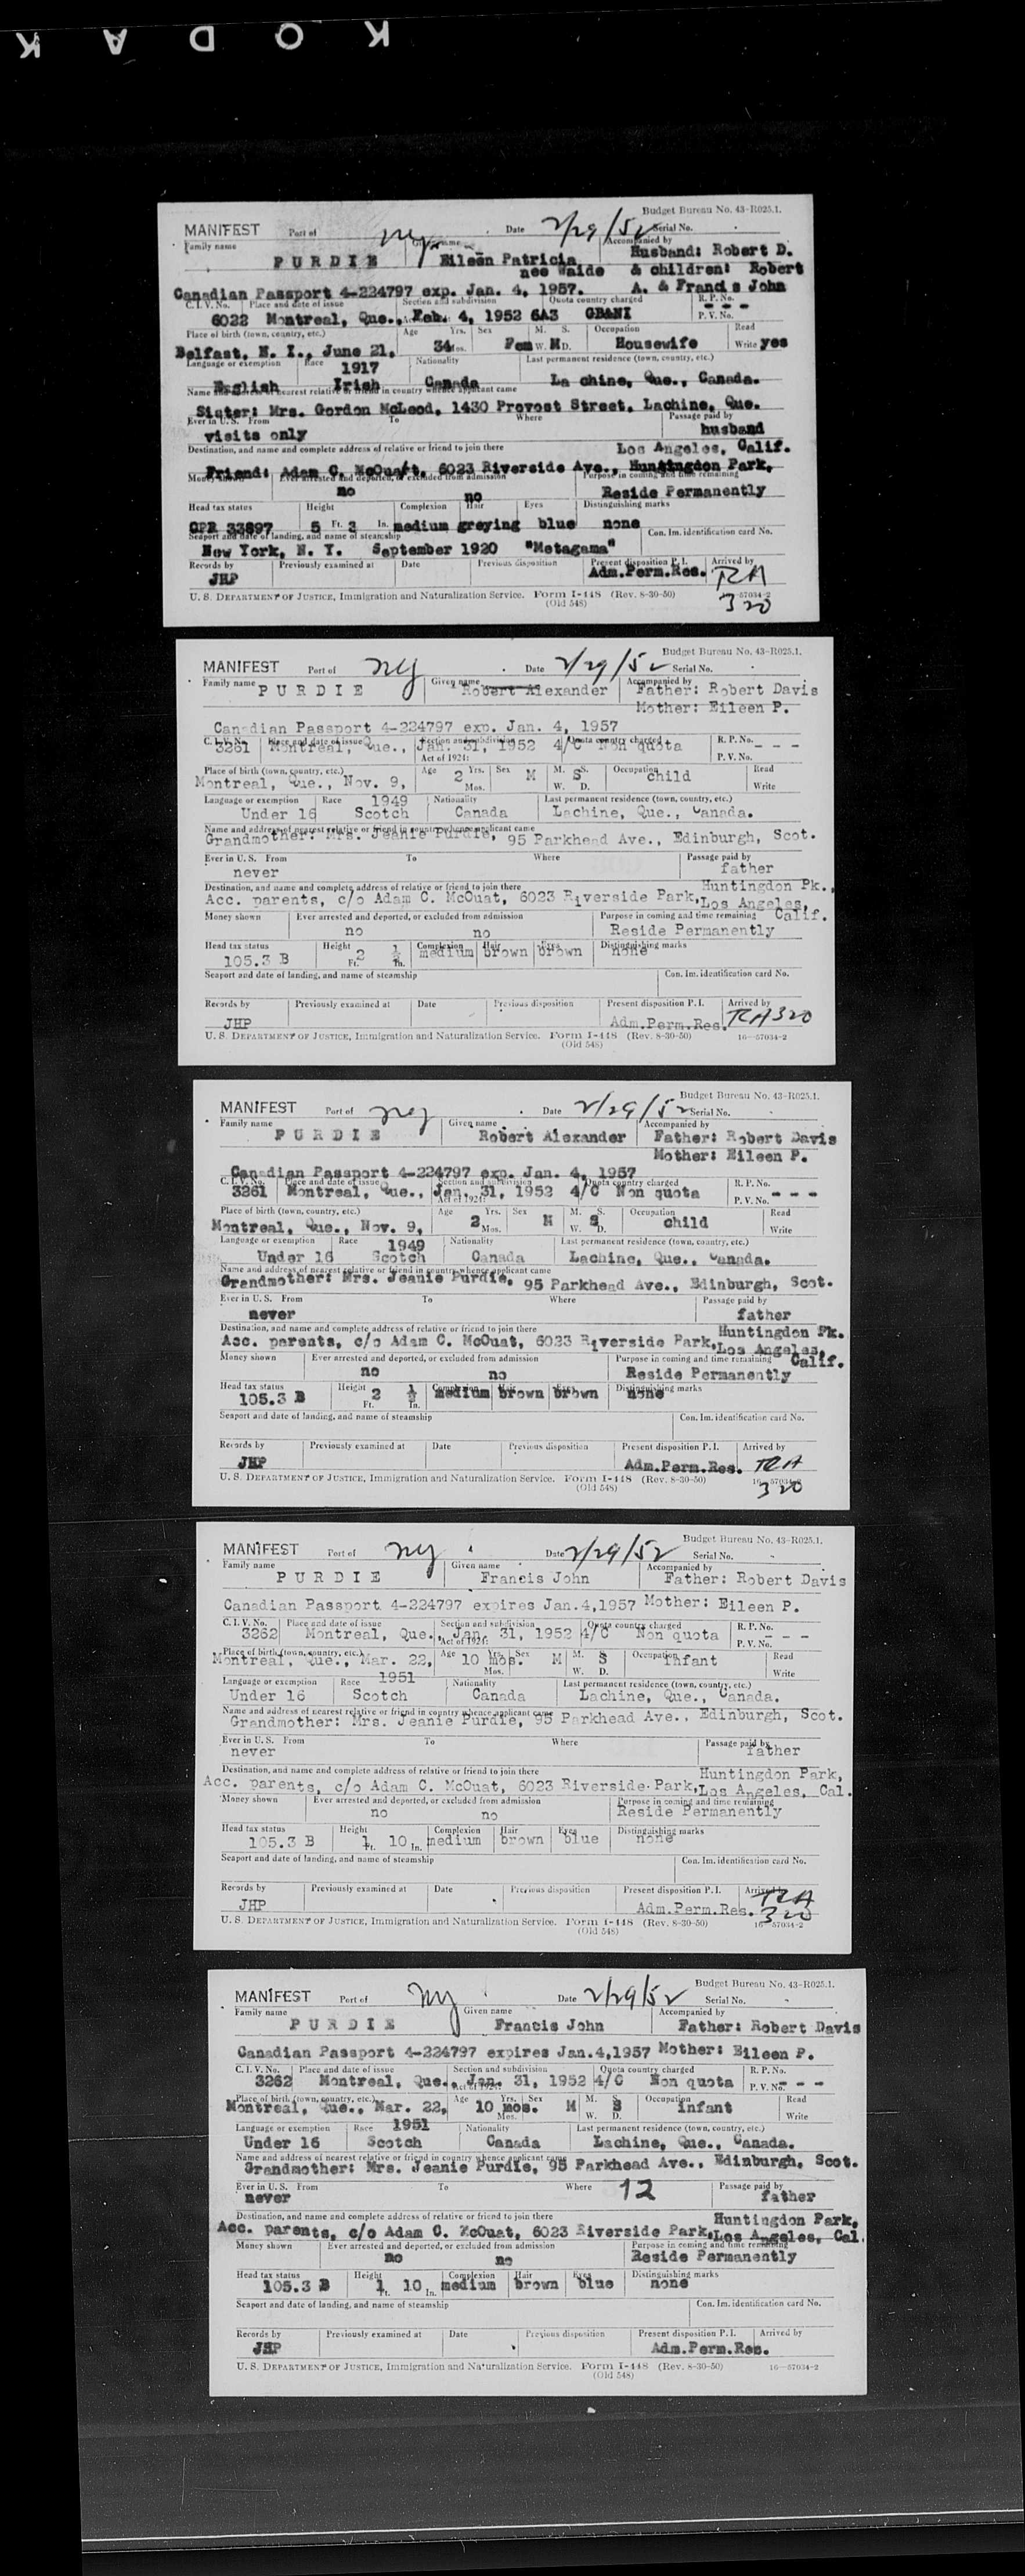 KODAK
Budget Bureau No. 43-R025.1.
MANIFEST Port of ny Date 2/29/52 Serial No.
Family name Given name Accompanied by
PURDIE Eileen Patricia Husband: Robert D.
nee Waide & children: Robert
Canadian Passport 4-224797 exp. Jan. 4, 1957. A. & Francis John
C. I. V. No. Place and date of issue Section and subdivision Quota country charged R. P. No. - - -
6022 Montreal, Que., Feb. 4, 1952 6A3 GB&NI P. V. No.
Place of birth (town, country, etc.) Age Yrs. Sex M. S. Occupation Read
Belfast, N. I., June 21, 34 Mos. Fem W. M D. Housewife Write yes
Language or exemption Race 1917 Nationality Last permanent residence (town, country, etc.)
English Irish Canada La chine, Que., Canada.
Name and address of nearest relative or friend in country whence applicant came
Sister: Mrs. Gordon McLeod, 1430 Provost Street, Lachine, Que.
Ever in U. S. From To Where Passage paid by
visits only husband
Destination, and name and complete address of relative or friend to join there Los Angeles, Calif.
Friend: Adam C. McOuat, 6023 Riverside Ave., Huntingdon Park,
Money shown Ever arrested and deported, or excluded from admission Purpose in coming and time remaining
no no Reside Permanently
Head tax status Height Complexion Hair Eyes Distinguishing marks
OPR 33897 5 Ft. 3 In. medium greying blue none
Seaport and date of landing, and name of steamship Con. Im. identification card No.
New York, N. Y. September 1920 "Metagama"
Records by Previously examined at Date Previous disposition Present disposition P. I. Arrived by
JHP Adm.Perm.Res. TCA
320
U. S. DEPARTMENT OF JUSTICE, Immigration and Naturalization Service. Form I-448 (Rev. 8-30-50) 16—57034-2
(Old 548)
Budget Bureau No. 43-R025.1.
MANIFEST Port of ny Date 2/29/52 Serial No.
Family name PURDIE Given name Robert Alexander Accompanied by Father: Robert Davis
Mother: Eileen P.
Canadian Passport 4-224797 exp. Jan. 4, 1957
C. I. V. No. Place and date of issue Section and subdivision Quota country charged R. P. No. - - -
3261 Montreal, Que., Jan. 31, 1952 4/C Non quota
Act of 1924: P. V. No.
Place of birth (town, country, etc.) Age 2 Yrs. Sex M M. S. Occupation child Read
Montreal, Que., Nov. 9, Mos. W. D. Write
Language or exemption Race 1949 Nationality Last permanent residence (town, country, etc.)
Under 16 Scotch Canada Lachine, Que., Canada.
Name and address of nearest relative or friend in country whence applicant came
Grandmother: Mrs. Jeanie Purdie, 95 Parkhead Ave., Edinburgh, Scot.
Ever in U. S. From To Where Passage paid by
never father
Destination, and name and complete address of relative or friend to join there Huntingdon Pk.,
Acc. parents, c/o Adam C. McOuat, 6023 Riverside Park, Los Angeles,
Money shown Ever arrested and deported, or excluded from admission Purpose in coming and time remaining Calif.
no no Reside Permanently
Head tax status Height Complexion Hair Eyes Distinguishing marks
105.3 B 2 Ft. ½ In. medium brown brown none
Seaport and date of landing, and name of steamship Con. Im. identification card No.
Records by Previously examined at Date Previous disposition Present disposition P. I. Arrived by
JHP Adm.Perm.Res. TCA 320
U. S. DEPARTMENT OF JUSTICE, Immigration and Naturalization Service. Form I-448 (Rev. 8-30-50) 16—57034-2
(Old 548)
Budget Bureau No. 43-R025.1.
MANIFEST Port of ny Date 2/29/52 Serial No.
Family name Given name Accompanied by
PURDIE Robert Alexander Father: Robert Davis
Mother: Eileen P.
Canadian Passport 4-224797 exp. Jan. 4, 1957
C. I. V. No. Place and date of issue Section and subdivision Quota country charged R. P. No.
3261 Montreal, Que., Jan. 31, 1952 4/C Non quota
Act of 1924: P. V. No. - - -
Place of birth (town, country, etc.) Age Yrs. Sex M. S. Occupation Read
Montreal, Que., Nov. 9, 2 Mos. M W. S D. child Write
Language or exemption Race 1949 Nationality Last permanent residence (town, country, etc.)
Under 16 Scotch Canada Lachine, Que., Canada.
Name and address of nearest relative or friend in country whence applicant came
Grandmother: Mrs. Jeanie Purdie, 95 Parkhead Ave., Edinburgh, Scot.
Ever in U. S. From To Where Passage paid by
never father
Destination, and name and complete address of relative or friend to join there Huntingdon Pk.
Acc. parents, c/o Adam C. McOuat, 6023 Riverside Park, Los Angeles,
Money shown Ever arrested and deported, or excluded from admission Purpose in coming and time remaining Calif.
no no Reside Permanently
Head tax status Height Complexion Hair Eyes Distinguishing marks
105.3 B 2 Ft. ½ In. medium brown brown none
Seaport and date of landing, and name of steamship Con. Im. identification card No.
Records by Previously examined at Date Previous disposition Present disposition P. I. Arrived by
JHP Adm.Perm.Res. TCA
U. S. DEPARTMENT OF JUSTICE, Immigration and Naturalization Service. Form I-448 (Rev. 8-30-50) 16—57034-2
(Old 548) 320
Budget Bureau No. 43-R025.1.
MANIFEST Port of ny Date 2/29/52 Serial No.
Family name Given name Accompanied by
PURDIE Francis John Father: Robert Davis
Canadian Passport 4-224797 expires Jan.4,1957 Mother: Eileen P.
C. I. V. No. Place and date of issue Section and subdivision Quota country charged R. P. No.
3262 Montreal, Que., Jan. 31, 1952 4/C Non quota - - -
Act of 1924: P. V. No.
Place of birth (town, country, etc.) Age Yrs. Sex M. S. Occupation Read
Montreal, Que., Mar. 22, 10 mos. M S infant
Mos. W. D. Write
Language or exemption Race 1951 Nationality Last permanent residence (town, country, etc.)
Under 16 Scotch Canada Lachine, Que., Canada.
Name and address of nearest relative or friend in country whence applicant came
Grandmother: Mrs. Jeanie Purdie, 95 Parkhead Ave., Edinburgh, Scot.
Ever in U. S. From To Where Passage paid by
never father
Destination, and name and complete address of relative or friend to join there Huntingdon Park,
Acc. parents, c/o Adam C. McOuat, 6023 Riverside Park, Los Angeles, Cal.
Money shown Ever arrested and deported, or excluded from admission Purpose in coming and time remaining
no no Reside Permanently
Head tax status Height Complexion Hair Eyes Distinguishing marks
105.3 B 1 Ft. 10 In. medium brown blue none
Seaport and date of landing, and name of steamship Con. Im. identification card No.
Records by Previously examined at Date Previous disposition Present disposition P. I. Arrived by
JHP Adm.Perm.Res. TCA 320
U. S. DEPARTMENT OF JUSTICE, Immigration and Naturalization Service. Form I-448 (Rev. 8-30-50) 16—57034-2
(Old 548)
Budget Bureau No. 43-R025.1.
MANIFEST Port of ny Date 2/29/52 Serial No.
Family name Given name Accompanied by
PURDIE Francis John Father: Robert Davis
Canadian Passport 4-224797 expires Jan.4,1957 Mother: Eileen P.
C. I. V. No. Place and date of issue Section and subdivision Quota country charged R. P. No.
3262 Montreal, Que., Jan. 31, 1952 4/C Non quota
Act of 1924: P. V. No. - - -
Place of birth (town, country, etc.) Age Yrs. Sex M. S. Occupation Read
Montreal, Que., Mar. 22, 10 mos. M S infant
Mos. W. D. Write
Language or exemption Race 1951 Nationality Last permanent residence (town, country, etc.)
Under 16 Scotch Canada Lachine, Que., Canada.
Name and address of nearest relative or friend in country whence applicant came
Grandmother: Mrs. Jeanie Purdie, 95 Parkhead Ave., Edinburgh, Scot.
Ever in U. S. From To Where 12 Passage paid by
never father
Destination, and name and complete address of relative or friend to join there Huntingdon Park,
Acc. parents, c/o Adam C. McOuat, 6023 Riverside Park, Los Angeles, Cal.
Money shown Ever arrested and deported, or excluded from admission Purpose in coming and time remaining
no no Reside Permanently
Head tax status Height Complexion Hair Eyes Distinguishing marks
105.3 B 1 Ft. 10 In. medium brown blue none
Seaport and date of landing, and name of steamship Con. Im. identification card No.
Records by Previously examined at Date Previous disposition Present disposition P. I. Arrived by
JHP Adm.Perm.Res.
U. S. DEPARTMENT OF JUSTICE, Immigration and Naturalization Service. Form I-448 (Rev. 8-30-50) 16—57034-2
(Old 548)